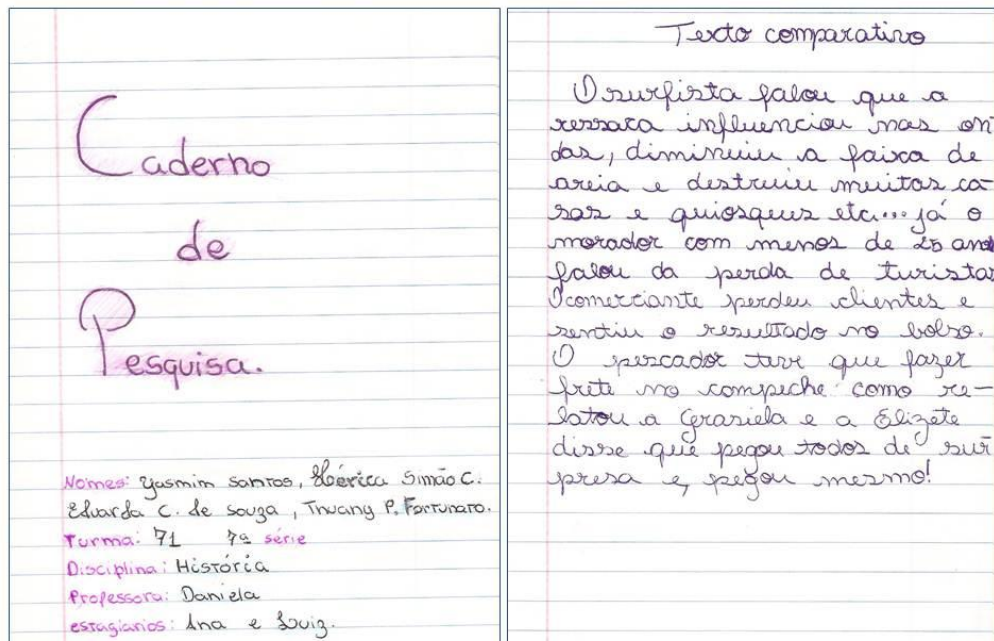 Caderno
de
Pesquisa.
Nomes: Yasmin Santos, Hérica Simão C.
Eduarda C. de Souza, Thuany P. Fortunato.
Turma: 71 7ª série
Disciplina: História
Professora: Daniela
estagiarios: Ana e Luiz.
Texto comparativo
O surfista falou que a
ressaca influenciou nas on
das, diminuiu a faixa de
areia e destruiu muitas ca-
sas e quiosques etc... já o
morador com menos de 25 anos
falou da perda de turistas
O comerciante perdeu clientes e
sentiu o resultado no bolso.
O pescador teve que fazer
frete no campeche como re-
latou a Grasiela e a Elizete
disse que pegou todos de sur
presa e, pegou mesmo!